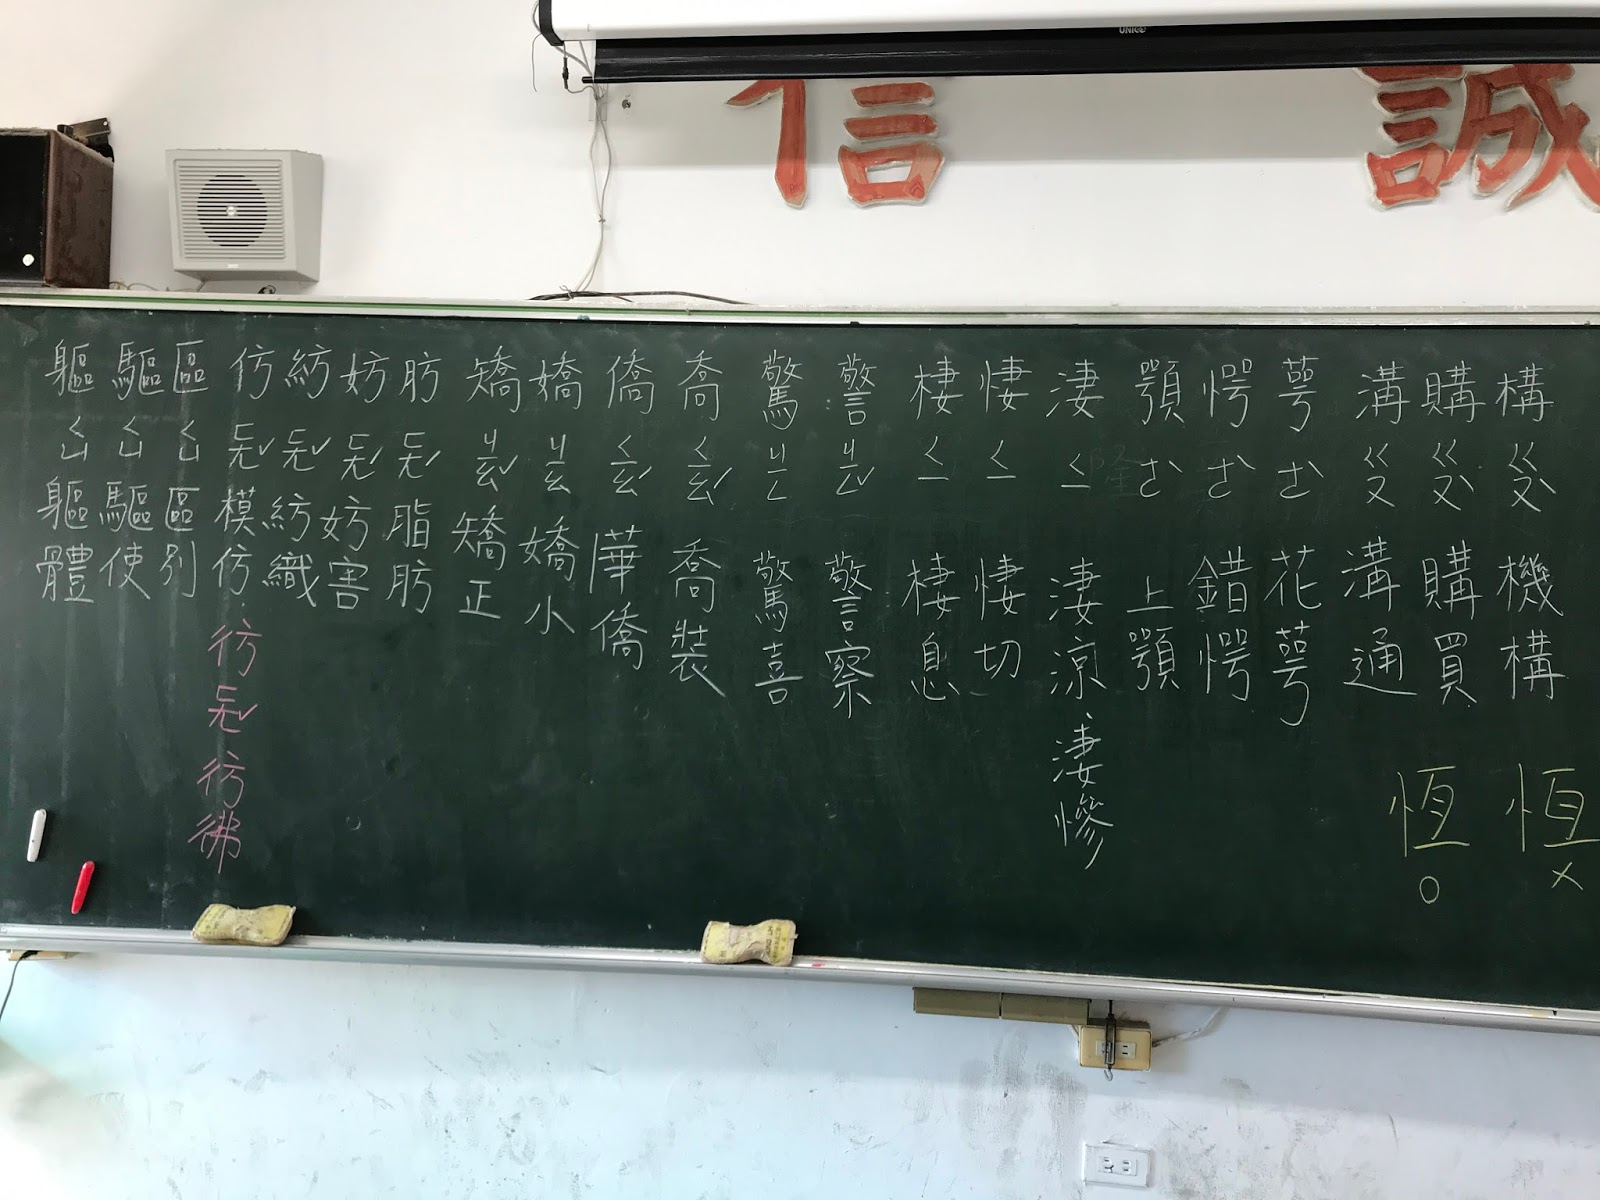 UNICO
誠
信
構 ㄍㄡˋ 機構
購 ㄍㄡˋ 購買
溝 ㄍㄡ 溝通
萼 ㄜˋ 花萼
愕 ㄜˋ 錯愕
顎 ㄜˋ 上顎
淒 ㄑㄧ 淒涼、淒慘
悽 ㄑㄧ 悽切
棲 ㄑㄧ 棲息
警 ㄐㄧㄥˇ 警察
驚 ㄐㄧㄥ 驚喜
喬 ㄑㄧㄠˊ 喬裝
僑 ㄑㄧㄠˊ 僑
嬌 ㄐㄧㄠ 嬌小
矯 ㄐㄧㄠˇ 矯正
肪 ㄈㄤˊ 脂肪
妨 ㄈㄤˊ 妨害
紡 ㄈㄤˇ 紡織
仿 ㄈㄤˇ 模仿、彷 ㄈㄤˇ 彷彿
區 ㄑㄩ 區別
驅 ㄑㄩ 驅使
軀 ㄑㄩ 軀體
恒 ×
恆 ○